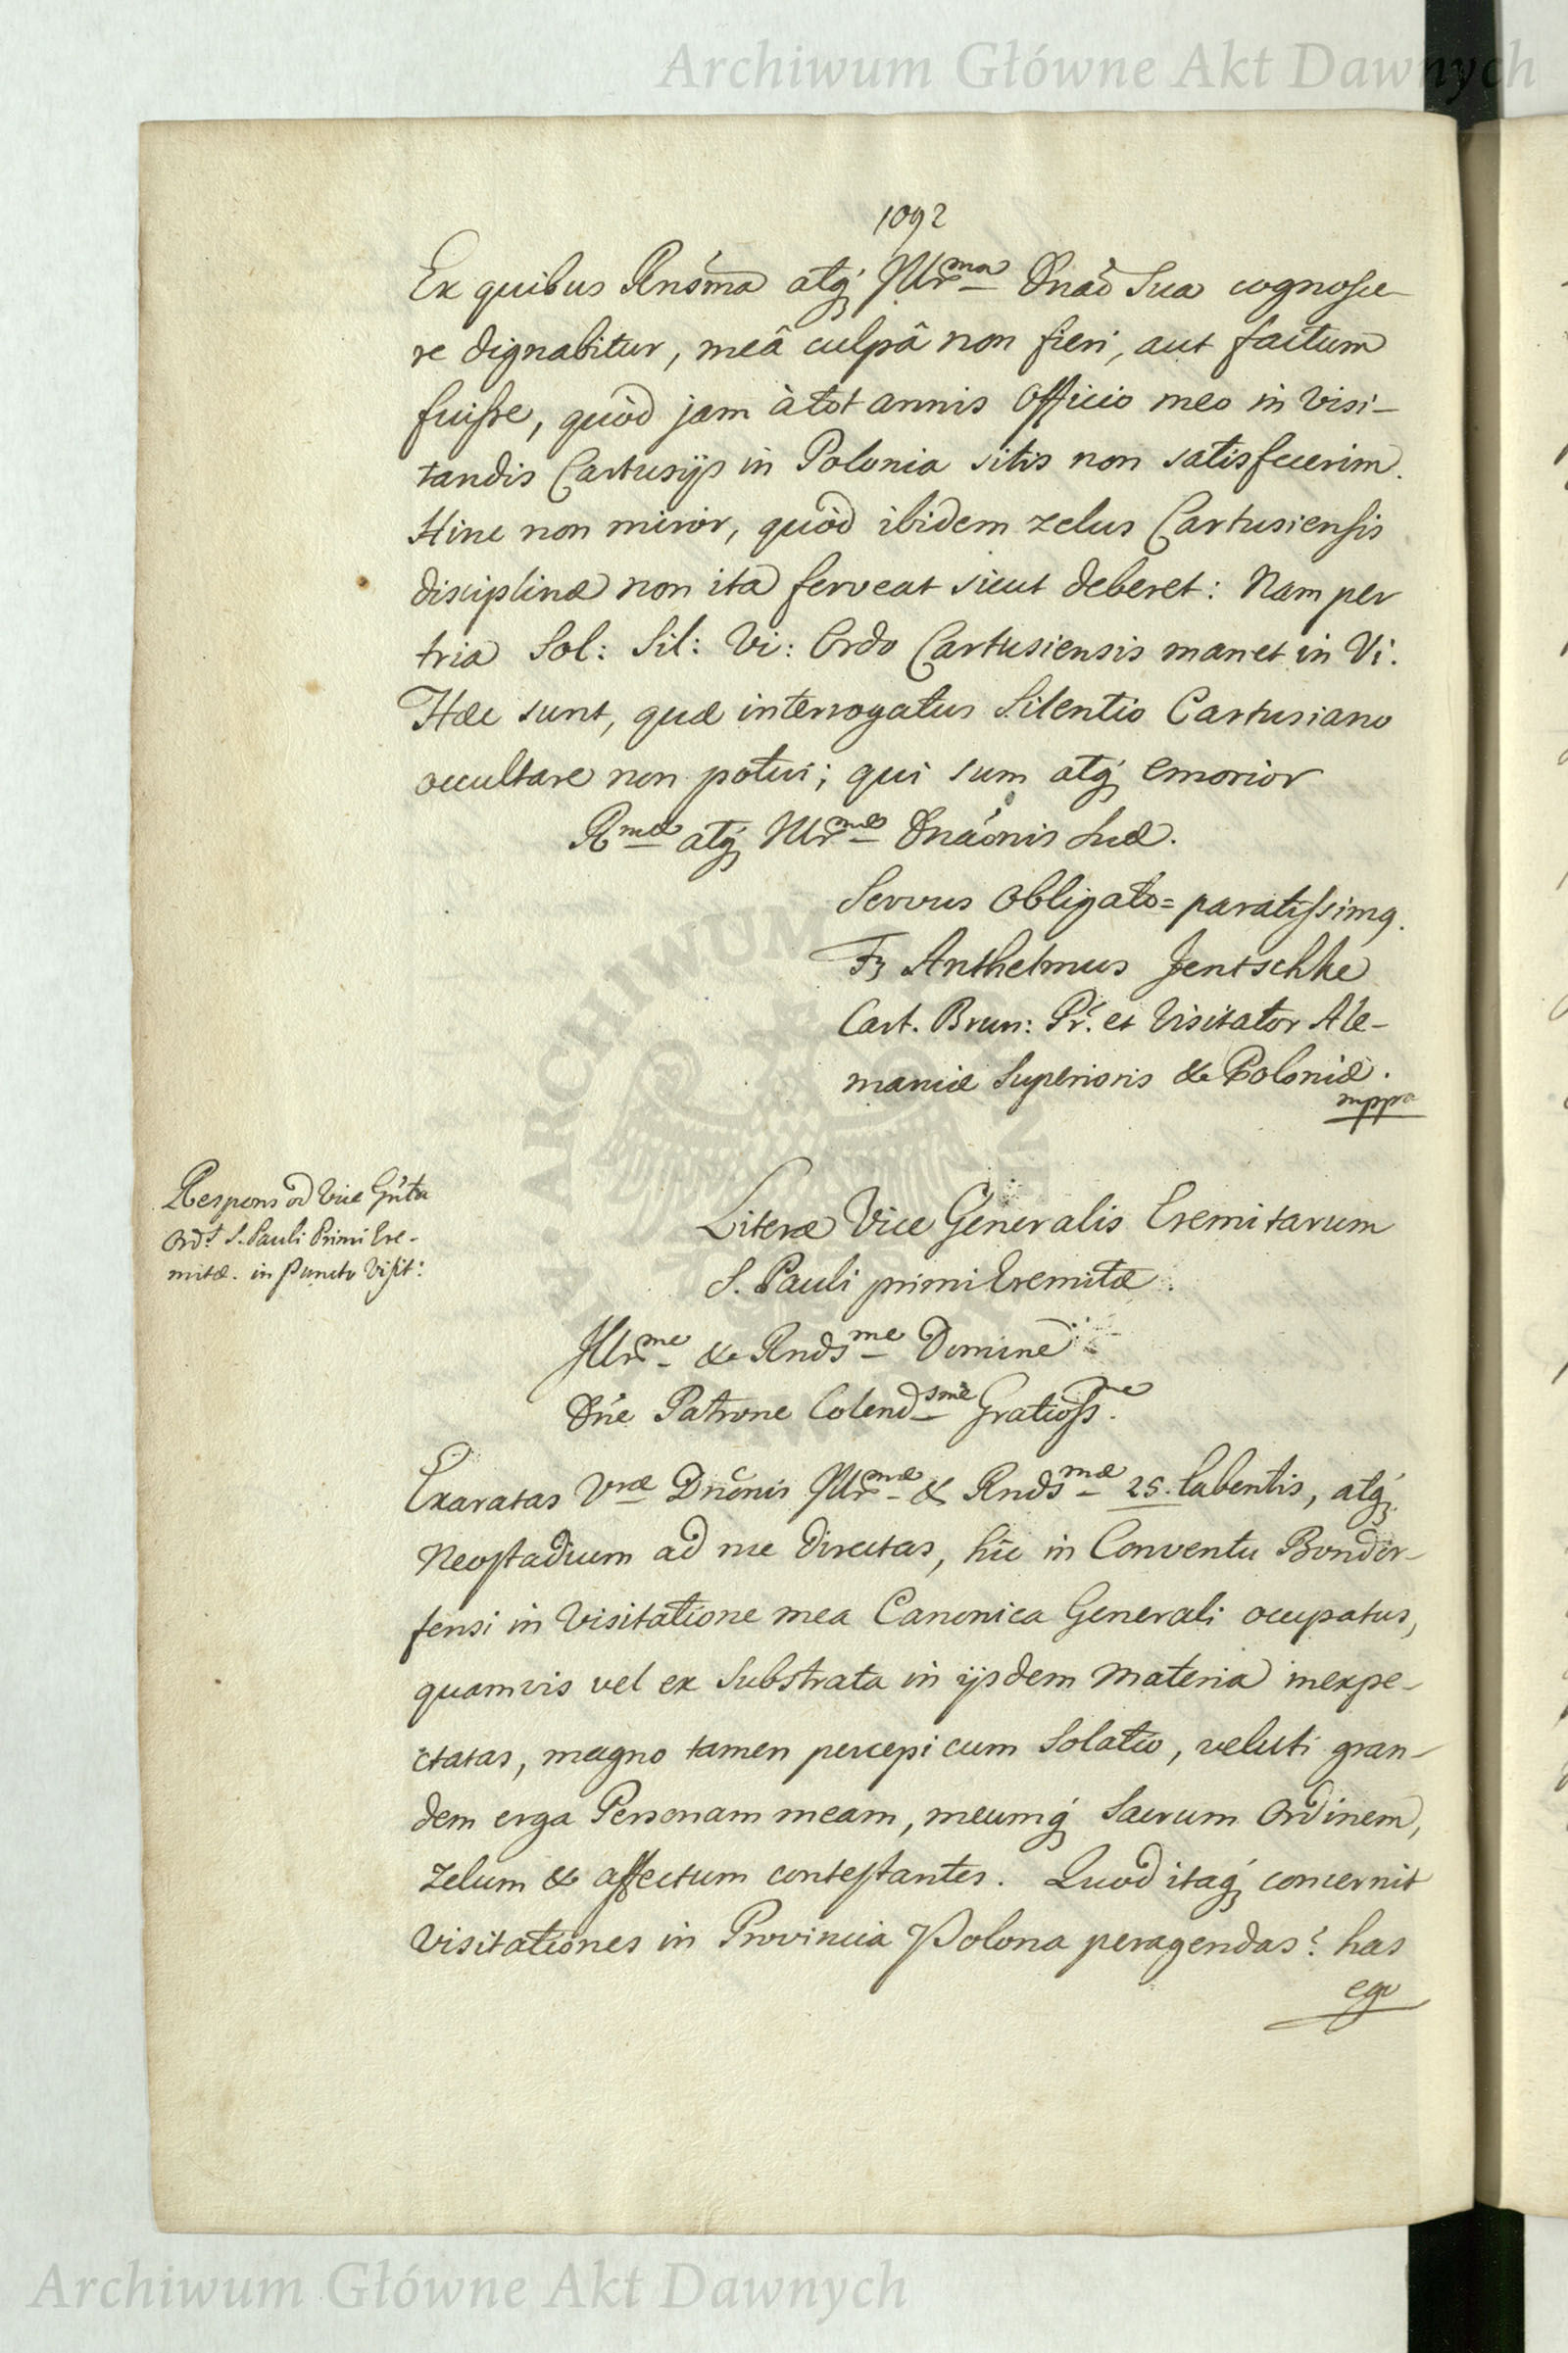 Archiwum Główne Akt Dawnych
1092
Ex quibus Rnd͂sma atq́ Illr̃ma Dnãõ Sua cognosce-
re dignabitur, meâ culpâ non fieri, aut factum
fuiſse, quòd jam à tot annis Officio meo in Visi-
tandis Cartusijs in Polonia sitis non satisfecerim.
Hinc non miror, quòd ibidem zelus Cartusiensis
disciplinæ non ita ferveat sicut deberet: Nam per
tria Sol: Sil: Vi: Ordo Cartusiensis manet in Vi.
Hæc sunt, quæ interrogatus Silentio Cartusiano
occultare non potui; qui sum atq́ emorior
Rmæ atq́ Illr̃mæ Dnãonis Suæ.
Servus Obligato= paratiſsimq.
Fr Anthelmus Jentschke
Cart. Brun: Pr. et Visitator Ale-
maniæ Superioris & Poloniæ.
mppa
Respons ad Vice Gñla
Ord: S. Pauli Primi Ere-
mitæ. in puncto Viſit:
Literæ Vice Generalis Eremitarum
S. Pauli primi Eremitæ.
Illr̃me & Rndsme Domine
Dñe Patrone Colendsme Gratioſſme.
Exaratas Vræ Dnõnis Illr̃mæ & Rndsmæ 25. labentis, atq́
Neoſtadium ad me directas, hîc in Conventu Bondor-
fensi in Visitatione mea Canonica Generali occupatus,
quamvis vel ex Substrata in ijsdem Materia inexpe-
ctatas, magno tamen percepi cum Solatio, veluti gran-
dem erga Personam meam, meumq́ Sacrum Ordinem,
Zelum & affectum conteſtantes. Quod itaq́ concernit
Visitationes in Provincia Polona peragendas? has
ego
Archiwum Główne Akt Dawnych